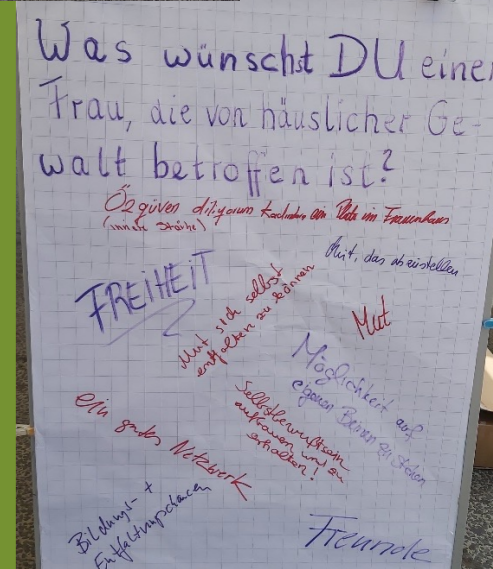 Was wünscht DU eine
Frau, die von häuslicher Ge-
walt betroffen ist?
Özgüven diliyorum ein Platz im Frauenhaus
(innere Stärke)
Mut, das abzustellen
FREIHEIT
Mut sich selbst
entfalten zu können
Mut
Möglichkeit auf
eigenen Beinen zu stehen
Selbstbewusstsein
aufbauen und zu
erhalten!
ein gutes Netzwerk
Bildungs- +
Entfaltungschancen
Freunde